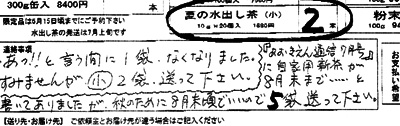 300g缶入 8400円
限定品は5月15日頃までにご予約下さい
水出し茶の発送は7月上旬です
夏の水出し茶(小)
10g×20包入 1680円
2本
粉末
100g
連絡事項
あっ!!と言う間に1袋、なくなりました。
すみませんが(小)2袋、送って下さい。
通信7月号
に自家用新茶が
8月末まで……と
書いてありましたが、秋のために8月末頃でいいので5袋送って下さい。
お支払い希望
【送り先・お届け先】 ご依頼主とお届け先が違う場合はご記入ください